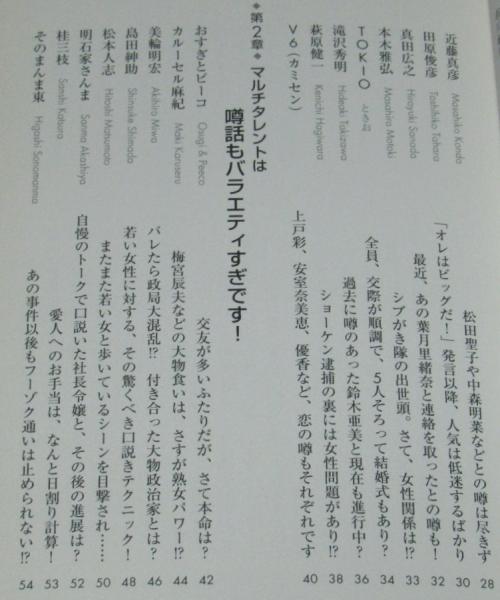 近藤真彦 Masahiko Kondo 松田聖子や中森明菜などとの噂は尽きず 28
田原俊彦 Toshihiko Tahara 「オレはビッグだ！」発言以降、人気は低迷するばかり 30
真田広之 Hiroyuki Sanada 最近、あの葉月里緒奈と連絡を取ったとの噂も！ 32
本木雅弘 Masahiro Motoki シブがき隊の出世頭。さて、女性関係は!? 33
TOKIO 全員、交際が順調で、5人そろって結婚式もあり？ 34
滝沢秀明 Hideaki Takizawa 過去に噂のあった鈴木亜美と現在も進行中？ 36
萩原健一 Kenichi Hagiwara ショーケン逮捕の裏には女性問題があり!? 38
V6（カミセン） 上戸彩、安室奈美恵、優香など、恋の噂もそれぞれです 40
◆第2章◆ マルチタレントは
噂話もバラエティすぎです！
おすぎとピーコ Osugi & Peeco 交友が多いふたりだが、さて本命は？ 42
カルーセル麻紀 Maki Karuseru 梅宮辰夫などの大物食いは、さすが熟女パワー!? 44
美輪明宏 Akihiro Miwa バレたら政局大混乱!? 付き合った大物政治家とは？ 46
島田紳助 Shinsuke Shimada 若い女性に対する、その驚くべき口説きテクニック！ 48
松本人志 Hitoshi Matsumoto またまた若い女と歩いているシーンを目撃され…… 50
明石家さんま Sanma Akashiya 自慢のトークで口説いた社長令嬢と、その後の進展は？ 52
桂三枝 Sanshi Katsura 愛人へのお手当は、なんと日割り計算！ 53
そのまんま東 Higashi Sonomanma あの事件以後もフーゾク通いは止められない!? 54